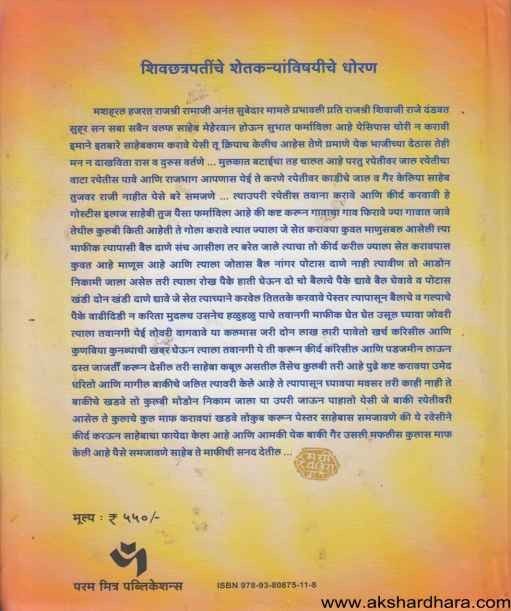 शिवछत्रपतींचे शेतकऱ्यांविषयीचे धोरण
मशहरल हजरत राजश्री रामाजी अनंत सुबेदार मामले प्रभावली प्रति राजश्री शिवाजी राजे दंडवत
सुहूर सन सबा सबैन वलफ साहेब मेहेरवान होऊन सुभात फर्माविला आहे येसिपास चोरी न करावी
इमाने इतबारे साहेबकाम करावे येसी तू क्रियाच केलीच आहेस तेणे प्रमाणे येक भाजीच्या देठास तेही
मन न दाखविता रास व दुरुस वर्तणे ... मुलकात बटाईचा तह चालत आहे परतु रयेतीवर जाल रयेतीचा
वाटा रयेतीस पावे आणि राजभाग आपणास येई ते करणे रयेतीवर काडीचे जाल व गैर केलिया साहेब
तुजवर राजी नाहीत येसे बरे समजणे ... त्याउपरी रयेतीस तवाना करावे आणि कीर्द करवावी हे
गोस्टीस इलाज साहेबी तुज पैसा फर्माविला आहे की कष्ट करून गावाचा गाव फिरावे ज्या गावात जावे
तेथील कुलबी किती आहेती ते गोला करावे त्यात ज्याला जे सेत करावया कुवत माणुसबल आसेली त्या
माफीक त्यापासी बैल दाणे संच आसीला तर बरेत जाले त्याचा तो कीर्द करील ज्याला सेत करावयास
कुवत आहे माणूस आहे आणि त्याला जोतास बैल नांगर पोटास दाणे नाही त्यावीण तो आडोन
निकामी जाला असेल तरी त्याला रोख पैके हाती घेऊन दो चो बैलाचे पैके द्यावे बैल घेवावे व पोटास
खंडी दोन खंडी दाणे द्यावे जे सेत त्याच्याने करवेल तितके करवावे पेस्तर त्यापासून बैलाचे व गल्याचे
पैके वाढीदिडी न करिता मुदलच उसनेच हळुहळु याचे तवानगी माफीक घेत घेत उसूल घ्यावा जोवरी
त्याला तवानगी येई तोवरी वागवावे या कलमास जरी दोन लाख लारी पावेतो खर्च करिसील आणि
कुणबिया कुनब्याची खबर घेऊन त्याला तवानगी ये ती करून कीर्द करिसील आणि पडजमीन लाऊन
दस्त जाजती करून देसील तरी साहेबा कबूल असतील तैसेच कुलबी तरी आहे पुढे कष्ट करावया उमेद
धरितो आणि मागील बाकीचे जलित त्यावरी केले आहे ते त्यापासून घ्यावया मवसर तरी काही नाही ते
बाकीचे खंडवे तो कुलबी मोडोन निकाम जाला या उपरी जाऊन पाहातो येसी जे बाकी रयेतीवरी
आसेल ते कुलाचे कुल माफ करावयां खडवे तोकुब करून पेस्तर साहेबास समजावणे की ये रवेसीने
कीर्द करऊन साहेबाचा फायेदा केला आहे आणि आमकी येक बाकी गैर उसली मफलीस कुलास माफ
केली आहे पैसे समजावणे साहेब ते माफीची सनद देतील ...
मूल्य : ₹ ५५०/-
परम मित्र पब्लिकेशन्स
ISBN 978-93-80875-11-8
www.akshardhara.com